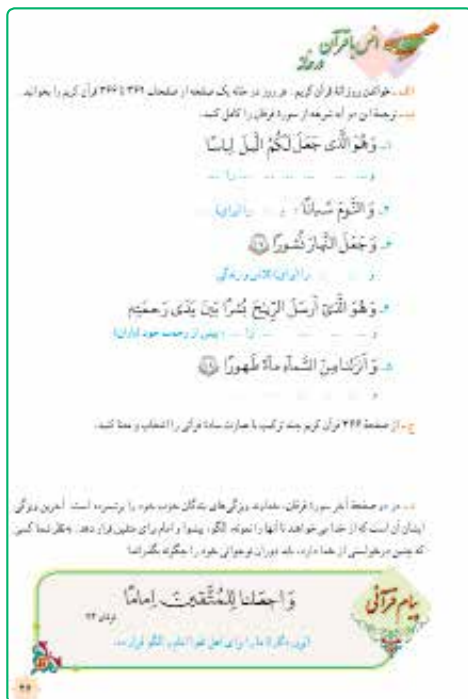 انس با قرآن در خانه
الف ـ خواندن روزانهٔ قرآن کریم: هر روز در خانه یک صفحه از صفحات ۳۶۱ تا ۳۶۶ قرآن کریم را بخوانید.
ب ـ ترجمهٔ این دو آیه شریفه از سورهٔ فرقان را کامل کنید.
۱ـ وَ هُوَ الَّذی جَعَلَ لَکُمُ الَّیلَ لِباسًا
و ... را ...
۲ـ وَ النَّومَ سُباتًا: و ... را (برای) ...
۳ـ وَ جَعَلَ النَّهارَ نُشورًا
و ... را (برای) تلاش و زندگی
۴ـ وَ هُوَ الَّذی أَرسَلَ الرِّیاحَ بُشرًا بَینَ یَدَی رَحمَتِهِ
و ... را ... پیش از رحمت خود (باران)
۵ـ وَ أَنزَلنا مِنَ السَّماءِ ماءً طَهورًا
و ...
ج ـ از صفحهٔ ۳۶۶ قرآن کریم چند ترکیب یا عبارت سادهٔ قرآنی را انتخاب و معنا کنید.
د ـ در دو صفحهٔ آخر سورهٔ فرقان، خداوند ویژگی‌های بندگان خوب خود را برشمرده است. آخرین ویژگی
ایشان آن است که از خدا می‌خواهند تا آنها را نمونه، الگو، پیشوا و امام برای متقین قرار دهد. به‌نظر شما کسی
که چنین درخواستی از خدا دارد، باید دوران نوجوانی خود را چگونه بگذراند؟
پیام قرآنی
وَ اجعَلنا لِلمُتَّقینَ إِمامًا
فرقان،
ما را برای اهل تقوا امام و الگو قرار ده.